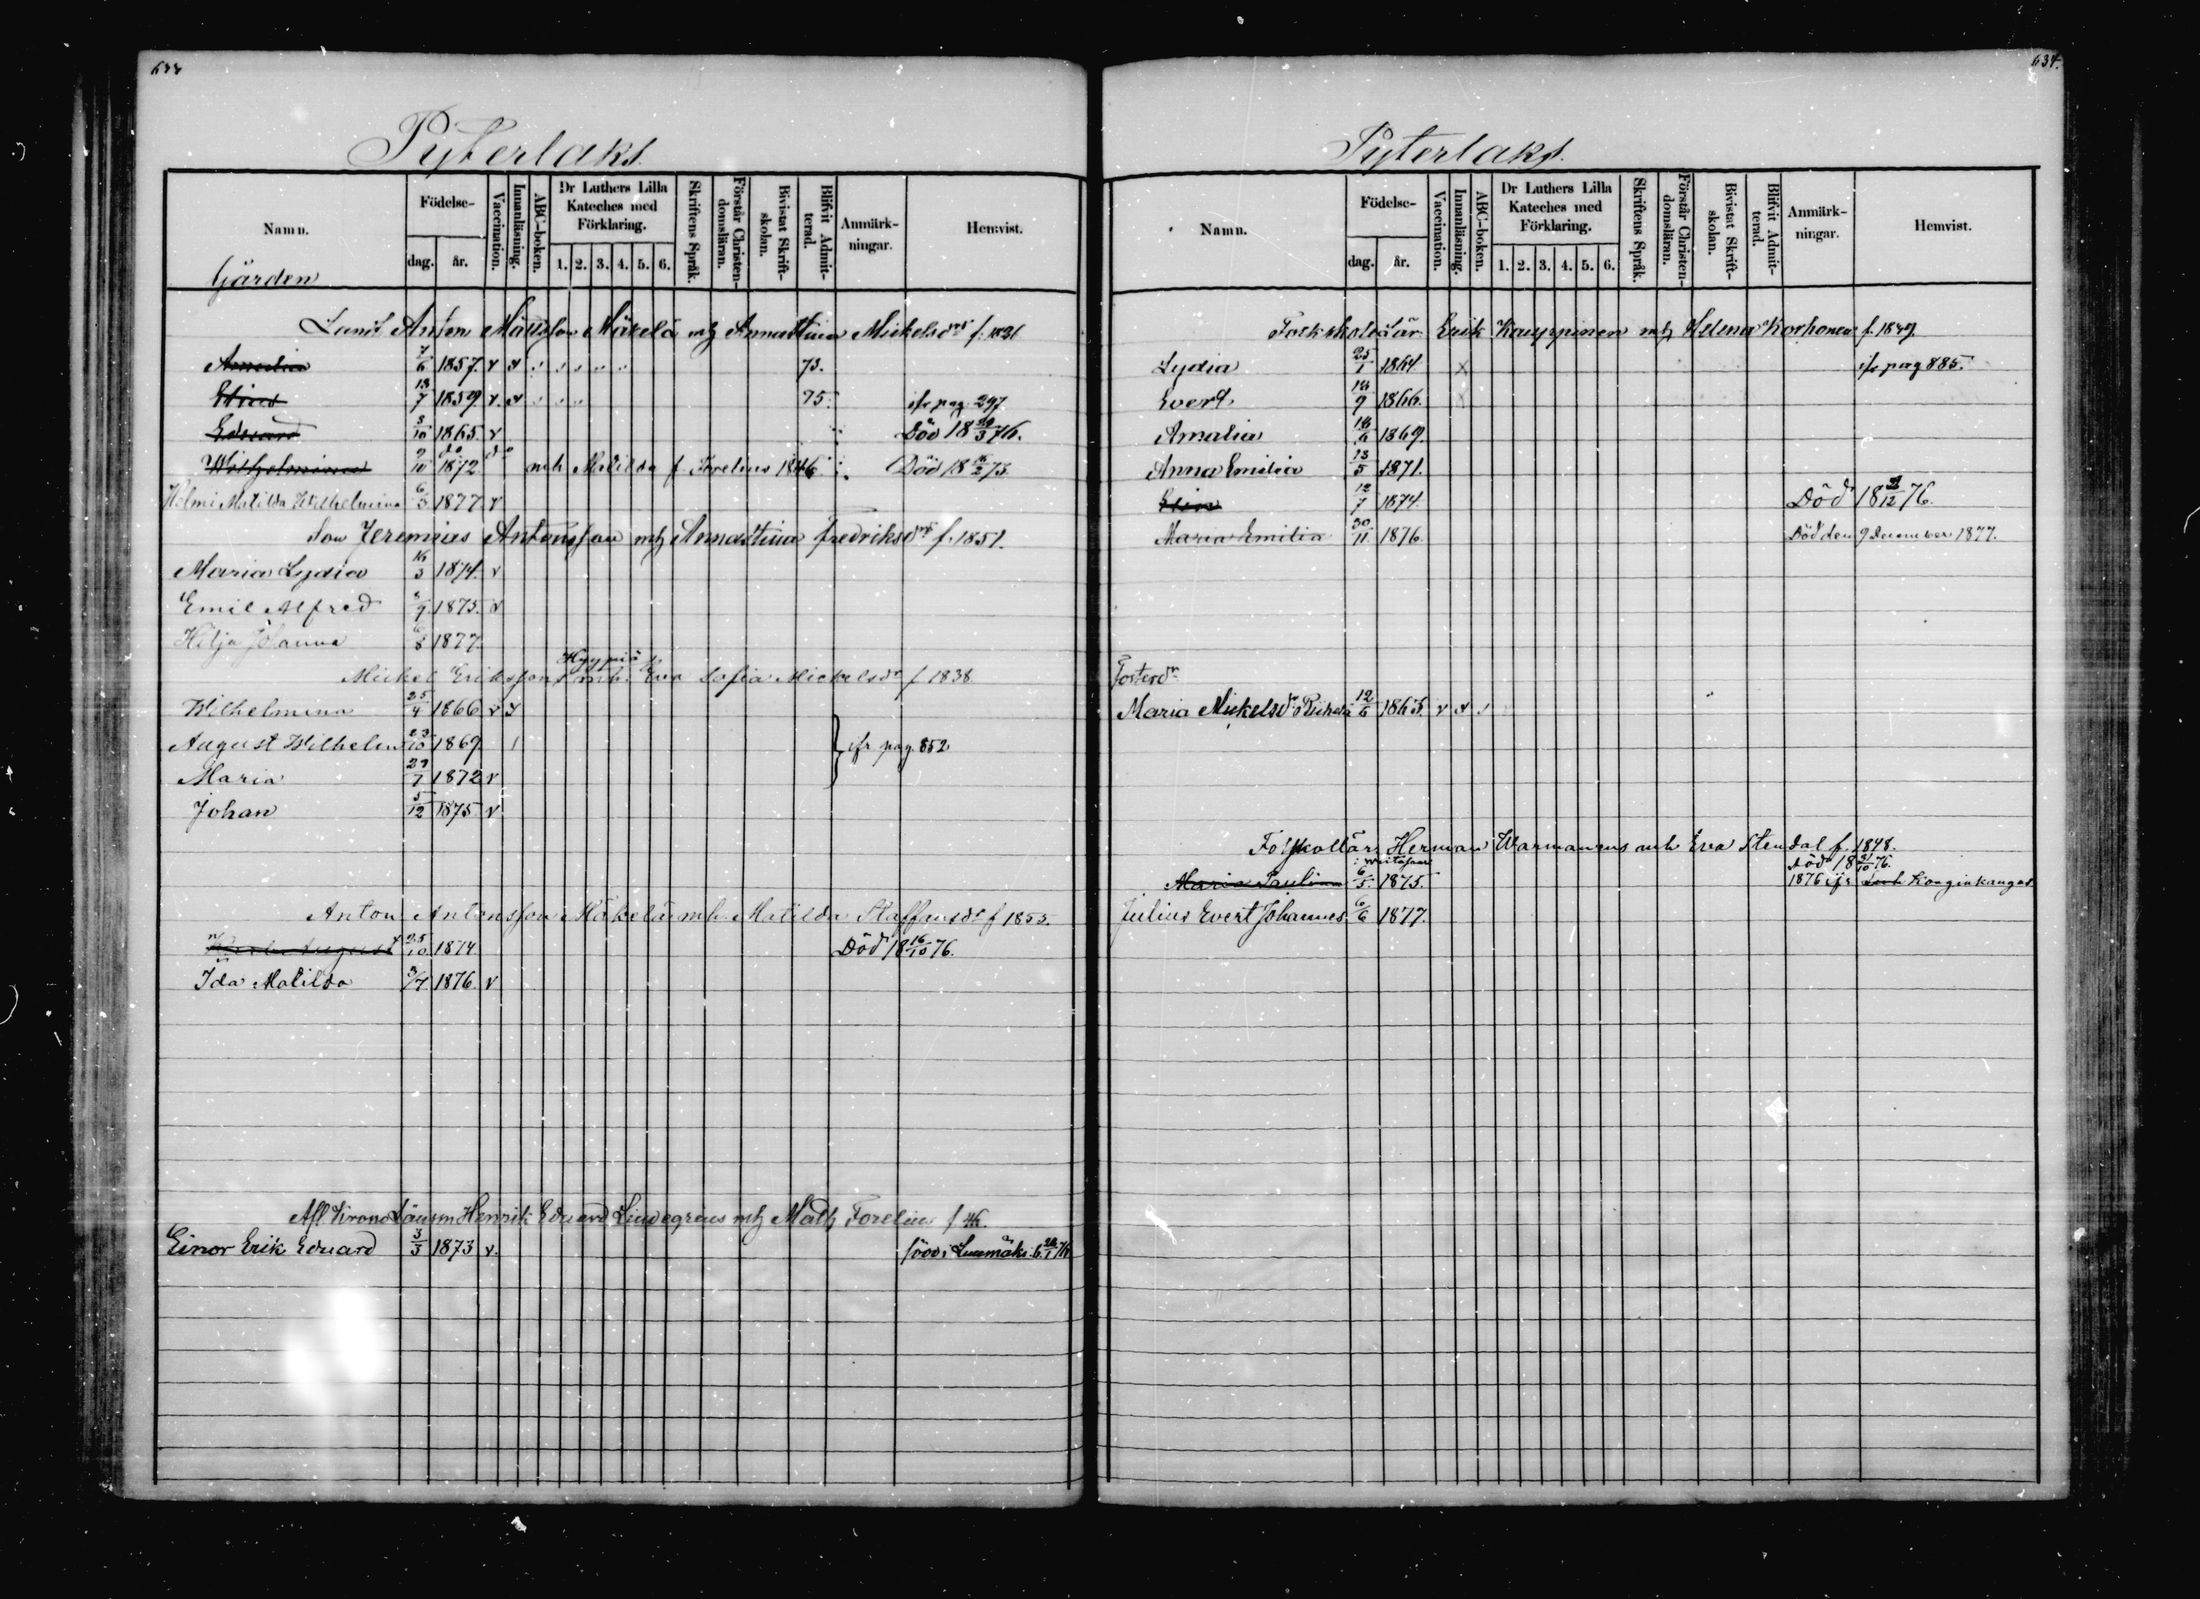 633
Pyterlaks
Namn.
Födelse-
dag.
år.
Vaccination.
Innanläsning.
ABC-boken.
Dr Luthers Lilla
Kateches med
Förklaring.
1. 2. 3. 4. 5. 6.
Skriftens Språk.
Förstår Christen-
domsläran.
Bivistat Skrift-
skolan.
Blifvit Admit-
terad.
Anmärk-
ningar.
Hemvist.
Gärden
Anton Mattsson Mäkelä mh Annastina Mickelsdr f. 1821
Amalia 7/6 1857. v x 73.
13/7 1859 v. x 75. ifr pag 297
Eduard 3/10 1865. v Död 18 /3 76.
Wilhelmina 9/10 1872. do mh Matilda f. Forelius 1846 Död 18 /2 73.
Helmi Matilda Wilhelmina 6/3 1877. v
Son Jeremias Antonsson mh Annastina Fredriksdr f. 1851.
Maria Lydia 16/3 1874. v
Emil Alfred /9 1875. v
Hilja Johanna 6/8 1877.
Hyypiä
Mickel Eriksson mh. Eva Sofia Mickelsdr f 1838
Wilhelmina 25/4 1866 v x
August Wilhelm 23/10 1869 ifr pag. 852
Maria 27/7 1872 v
Johan 5/12 1875 v
Anton Antonsson Mäkelä mh. Matilda Staffansdr f 1855.
Karl August 25/10 1874 Död 18 16/10 76.
Ida Matilda 3/7 1876. v
Afl. Krono Länsm Henrik Eduard Lindegrens mh Math Forelius f 46.
Einar Erik Eduard 3/3 1873 v. Luumäki
634.
Pyterlaks.
Namn.
Födelse-
dag.
år.
Vaccination.
Innanläsning.
ABC-boken.
Dr Luthers Lilla
Kateches med
Förklaring.
1. 2. 3. 4. 5. 6.
Skriftens Språk.
Förstår Christen-
domsläran.
Bivistat Skrift-
skolan.
Blifvit Admit-
terad.
Anmärk-
ningar.
Hemvist.
Folkskolelär. Erik Kauppinen mh Helena Korhonen f. 1849.
Lydia 25/1 1864 x ifr pag 885.
Evert 18/9 1866. x
Amalia 18/6 1869.
Anna Emilia 13/5 1871.
Elin 12/7 1874. Död 18 /12 76.
Maria Emilia 30/11 1876. Död den 9 December 1877.
Fosterdr
Maria Mickelsdr 12/6 1865. v x
Folkskollär. Herman Warmanens mh Eva Stendal f. 1848.
Död 18 21/10 76.
Maria Paulina 6/5 1875. 1876 ifr Konginkangas.
Julius Evert Johannes 6/6 1877.